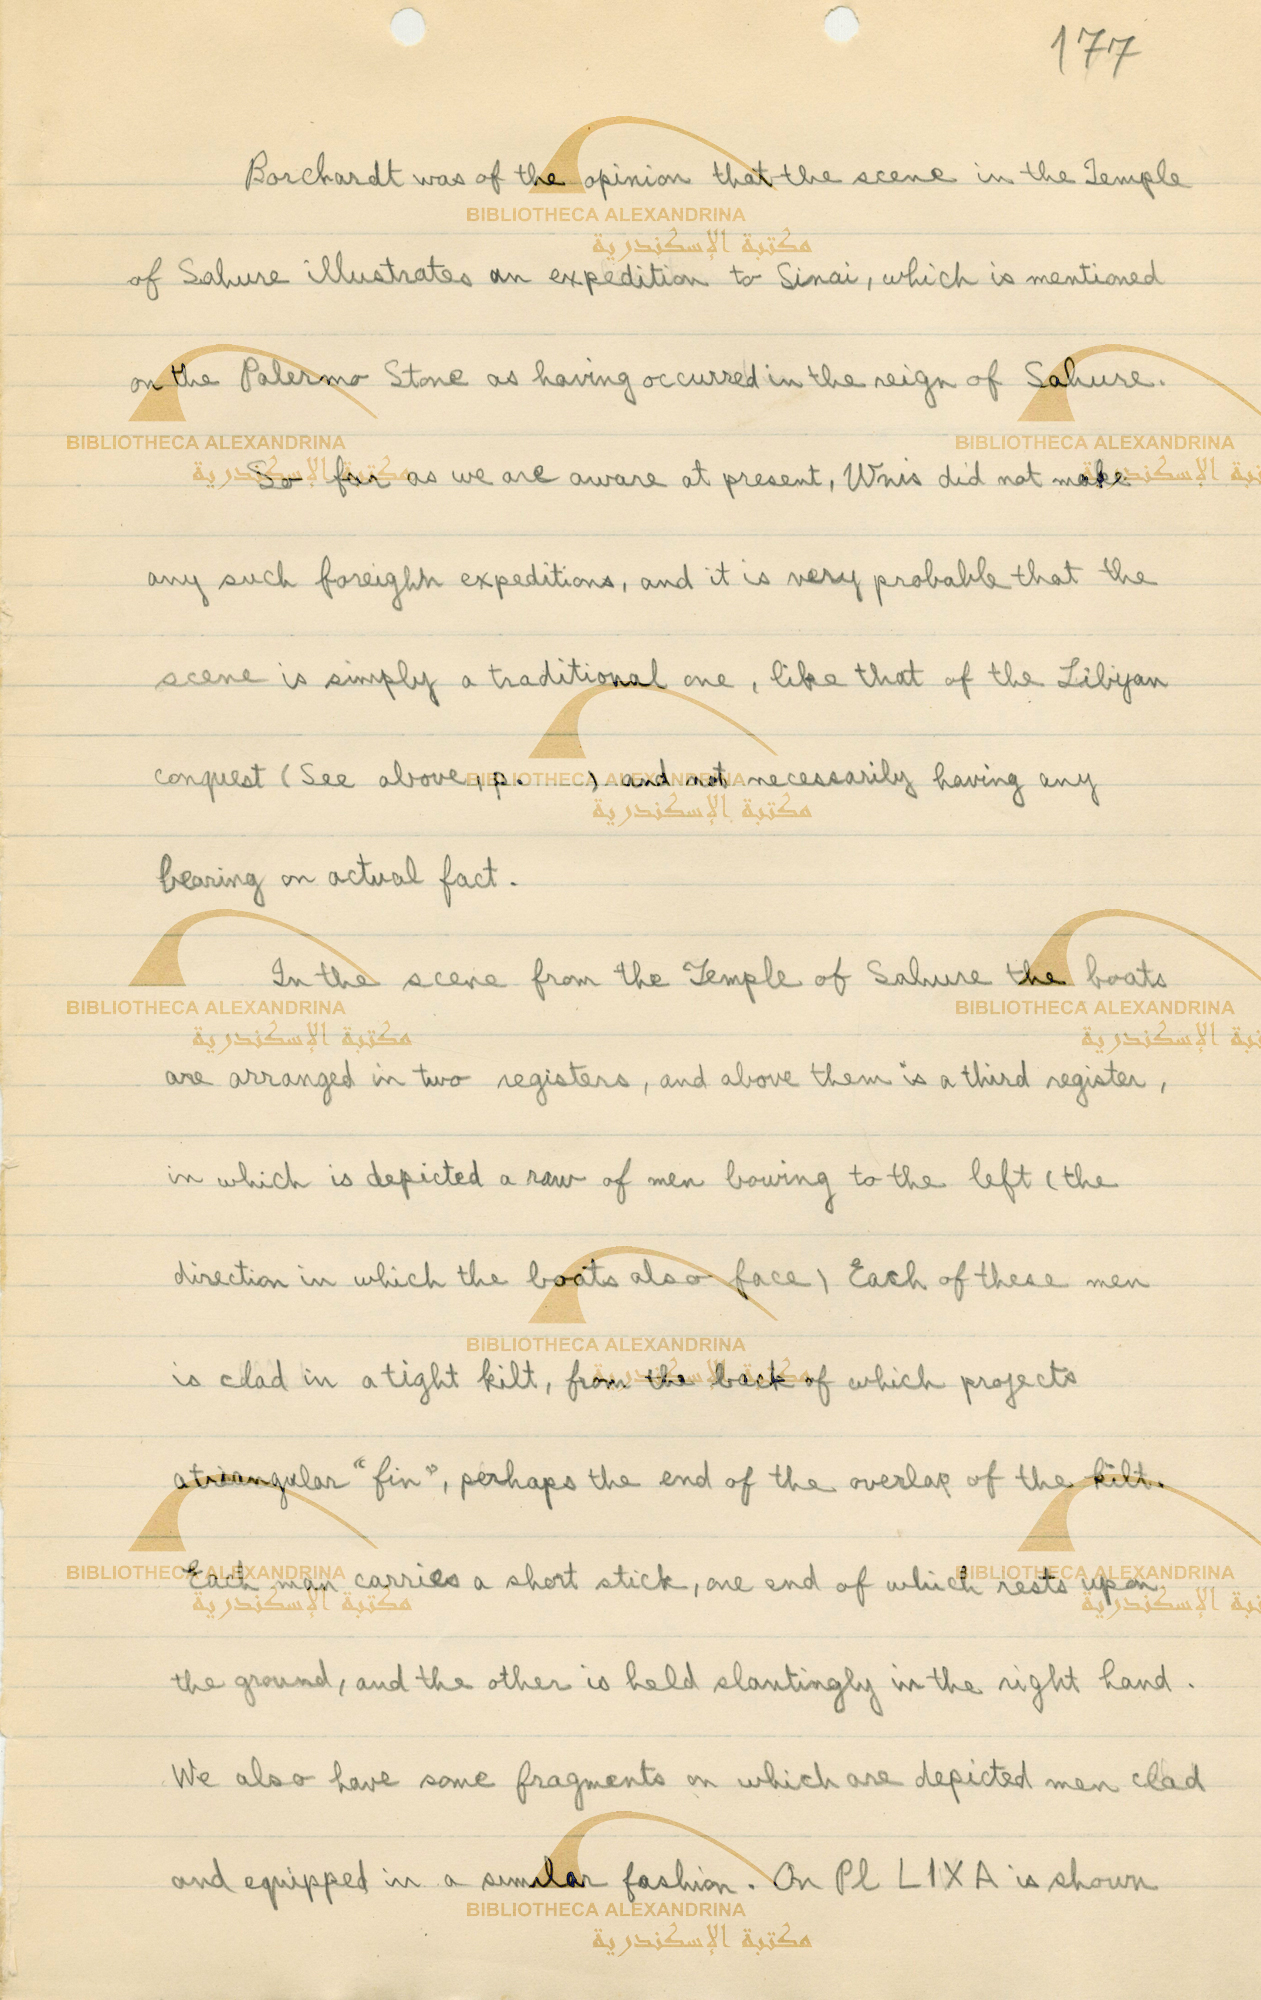 177
Borchardt was of the opinion that the scene in the Temple
of Sahure illustrates an expedition to Sinai, which is mentioned
on the Palermo Stone as having occurred in the reign of Sahure.
So far as we are aware at present, Wnis did not make
any such foreighn expeditions, and it is very probable that the
scene is simply a traditional one, like that of the Libyan
conquest (See above, p. ) and not necessarily having any
bearing on actual fact.
In the scene from the Temple of Sahure the boats
are arranged in two registers, and above them is a third register,
in which is depicted a raw of men bowing to the left (the
direction in which the boats also face) Each of these men
is clad in a tight kilt, from the back of which projects
a triangular "fin", perhaps the end of the overlap of the kilt.
Each man carries a short stick, one end of which rests upon
the ground, and the other is held slantingly in the right hand.
We also have some fragments on which are depicted men clad
and equipped in a similar fashion. On Pl LIXA is shown
BIBLIOTHECA ALEXANDRINA
مكتبة الإسكندرية